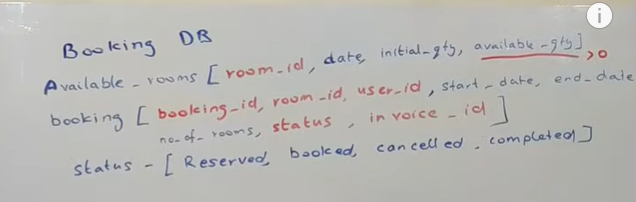 Booking DB
Available_rooms [room_id, date, initial_qty, available_qty] >0
booking [booking_id, room_id, user_id, start_date, end_date
no_of_rooms, status, invoice_id]
status - [Reserved, booked, cancelled, completed]